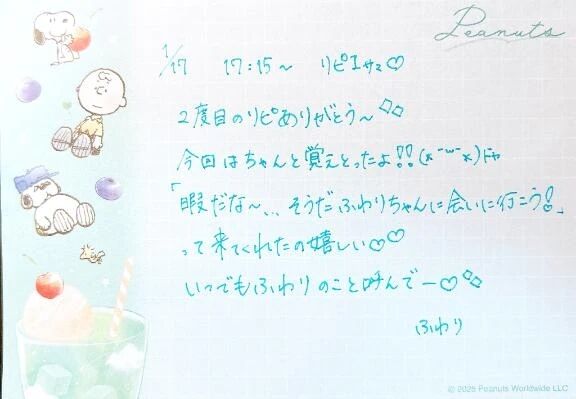 Peanuts
1/17 17:15～ リピエサマ♡
2度目のリピありがとう～◇◇
今回はちゃんと覚えとったよ!!(*￣ー￣*)ドヤ
「暇だな～、、そうだふわりちゃんに会いに行こう!」
って来てくれたの嬉しい♡♡
いつでもふわりのこと呼んでー♡◇◇
ふわり
© 2025 Peanuts Worldwide LLC